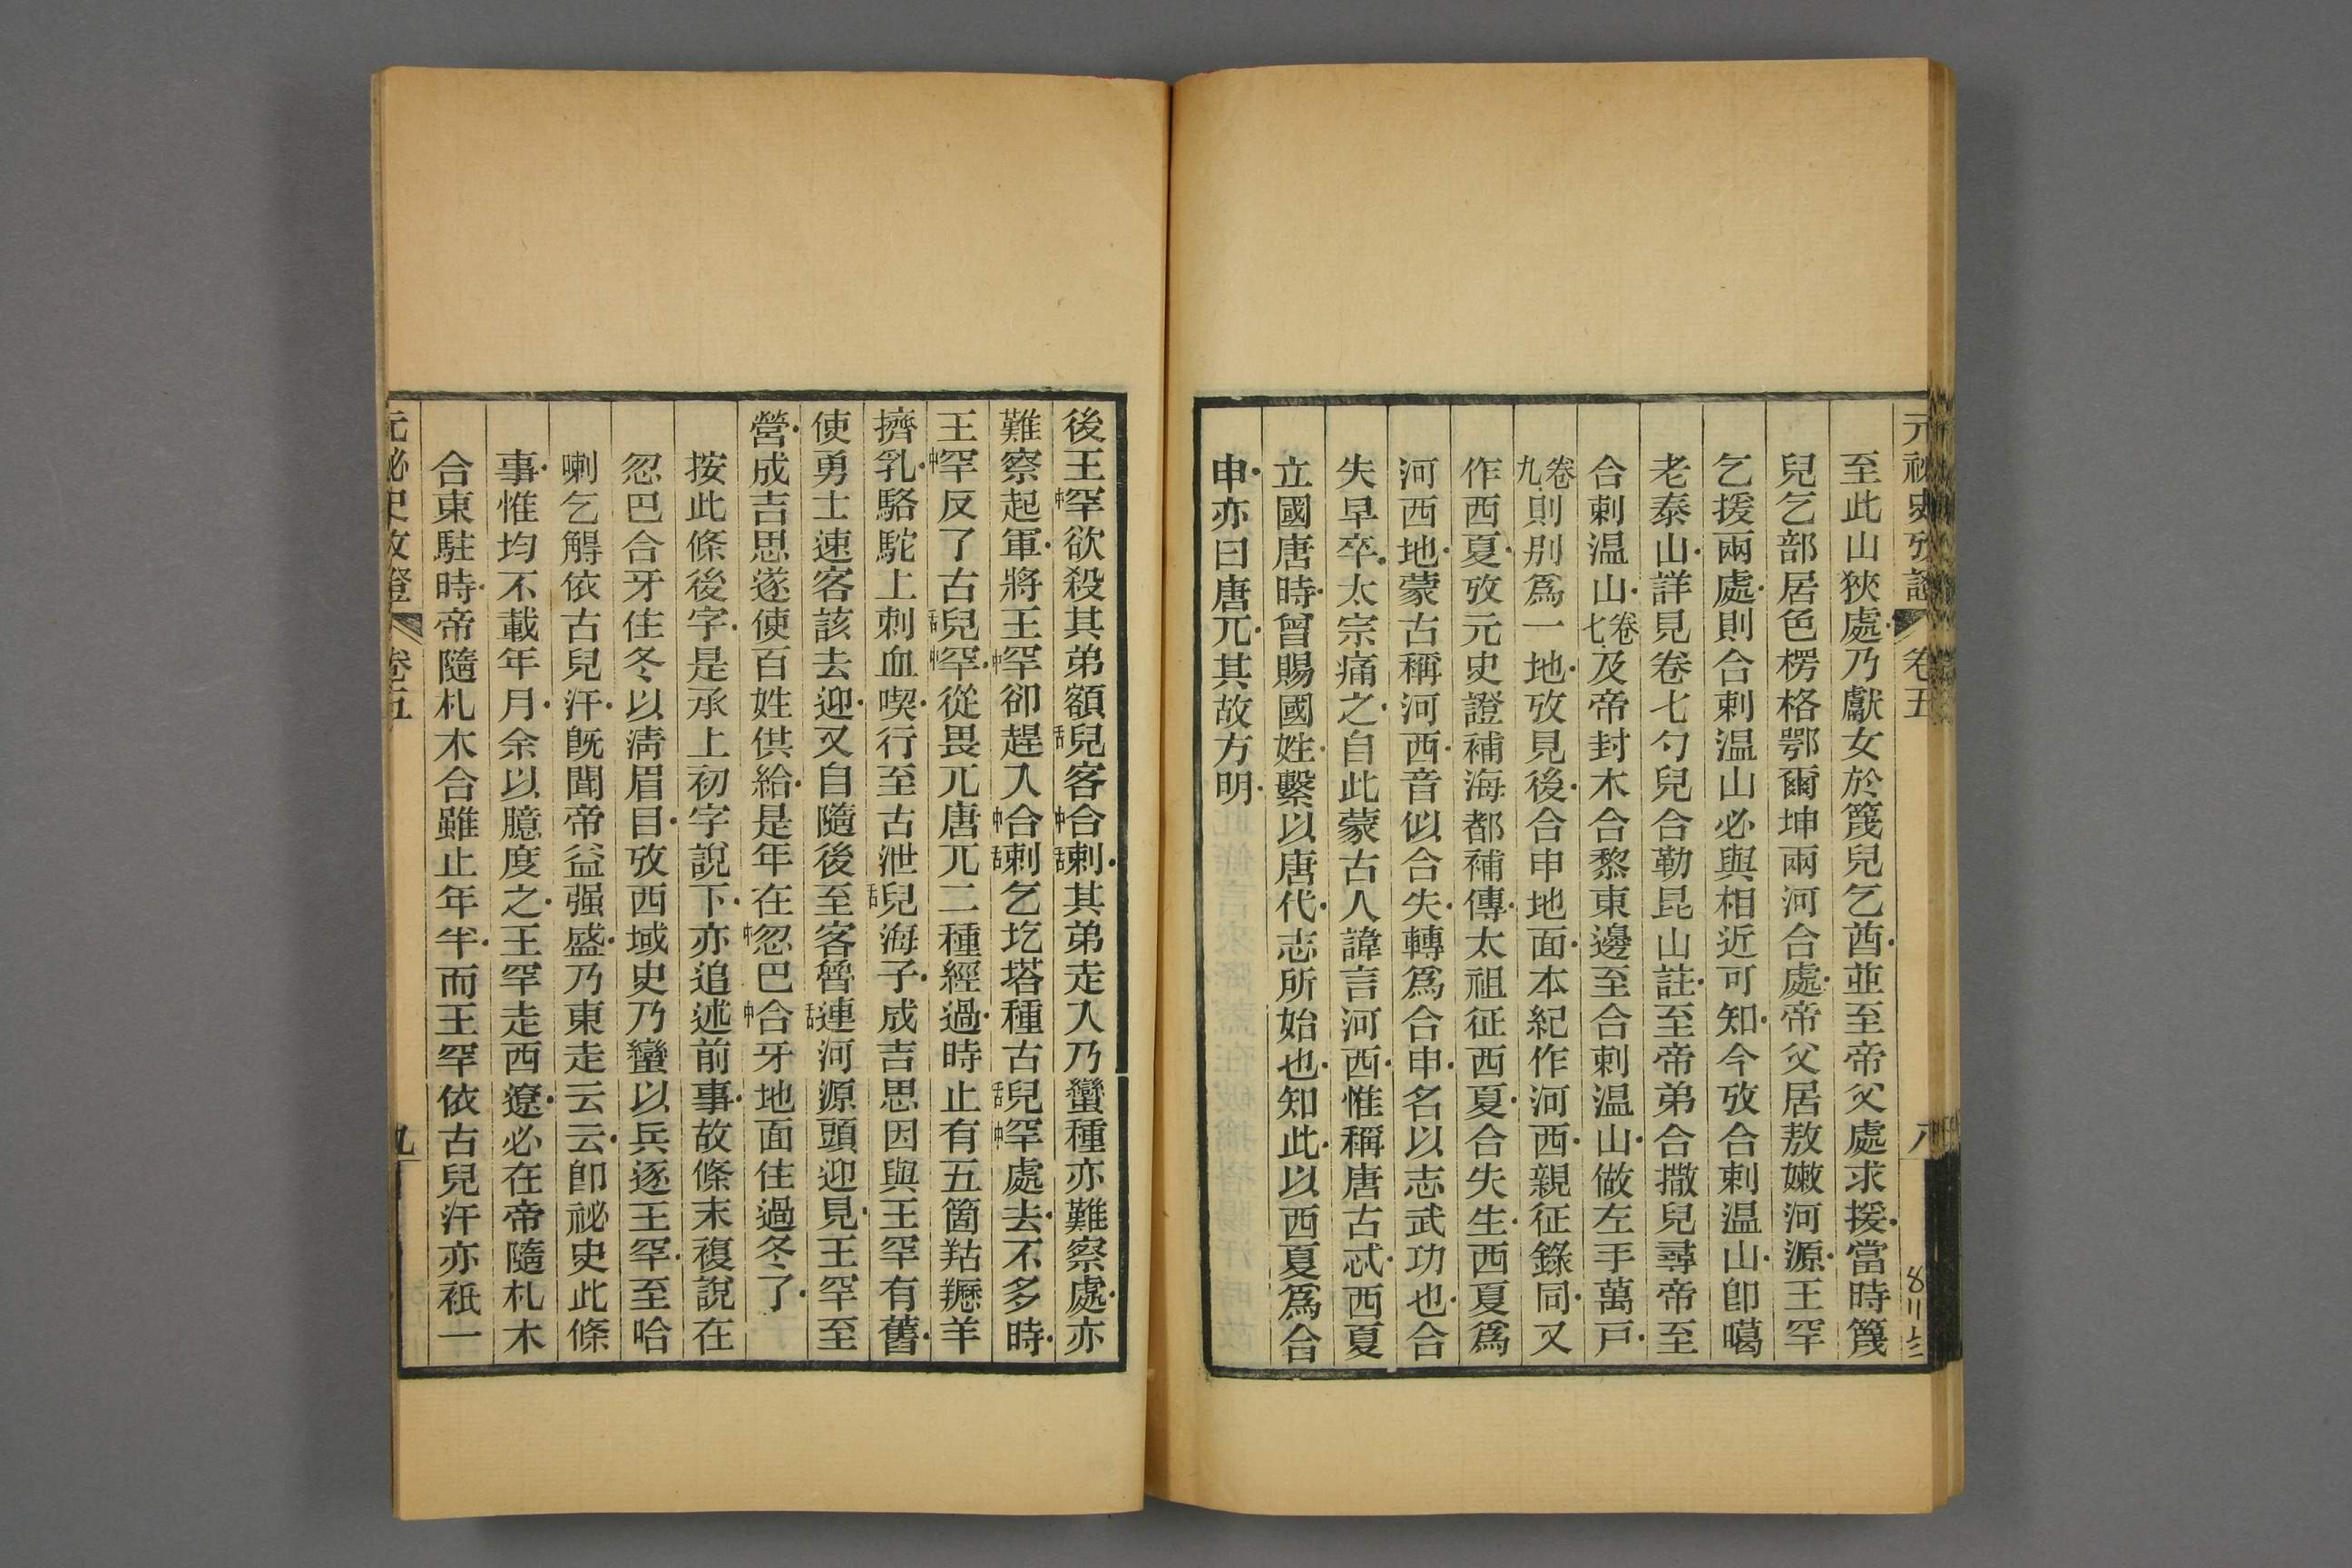 元祕史攷證 卷五 八
至此山狹處乃獻女於篾兒乞酋並至帝父處求援當時篾
兒乞部居色楞格鄂爾坤兩河合處帝父居敖嫩河源王罕
乞援兩處則合剌溫山必與相近可知今攷合剌溫山卽噶
老泰山詳見卷七勺兒合勒昆山註至帝弟合撒兒尋帝至
合剌溫山卷七及帝封木合黎東邊至合剌溫山做左手萬戸
卷九則别爲一地攷見後合申地面本紀作河西親征錄同又
作西夏攷元史證補海都補傳太祖征西夏合失生西夏爲
河西地蒙古稱河西音似合失轉爲合申名以志武功也合
失早卒太宗痛之自此蒙古人諱言河西惟稱唐古忒西夏
立國唐時曾賜國姓繫以唐代志所始也知此以西夏爲合
申亦曰唐兀其故方明
後王中罕欲殺其弟額舌兒客中合舌剌其弟走入乃蠻種亦難察處亦
難察起軍將王中罕卻趕入中合舌剌乞圪塔種古舌兒中罕處去不多時
王中罕反了古舌兒中罕從畏兀唐兀二種經過時止有五箇羖䍽羊
擠乳駱駝上刺血喫行至古泄舌兒海子成吉思因與王罕有舊
使勇士速客該去迎又自隨後至客魯舌連河源頭迎見王罕至
營成吉思遂使百姓供給是年在中忽巴中合牙地面住過冬了
按此條後字是承上初字說下亦追述前事故條末複說在
忽巴合牙住冬以淸眉目攷西域史乃蠻以兵逐王罕至哈
喇乞䚟依古兒汗旣聞帝益强盛乃東走云云卽祕史此條
事惟均不載年月余以臆度之王罕走西遼必在帝隨札木
合東駐時帝隨札木合雖止年半而王罕依古兒汗亦祇一
元祕史攷證 卷五 九